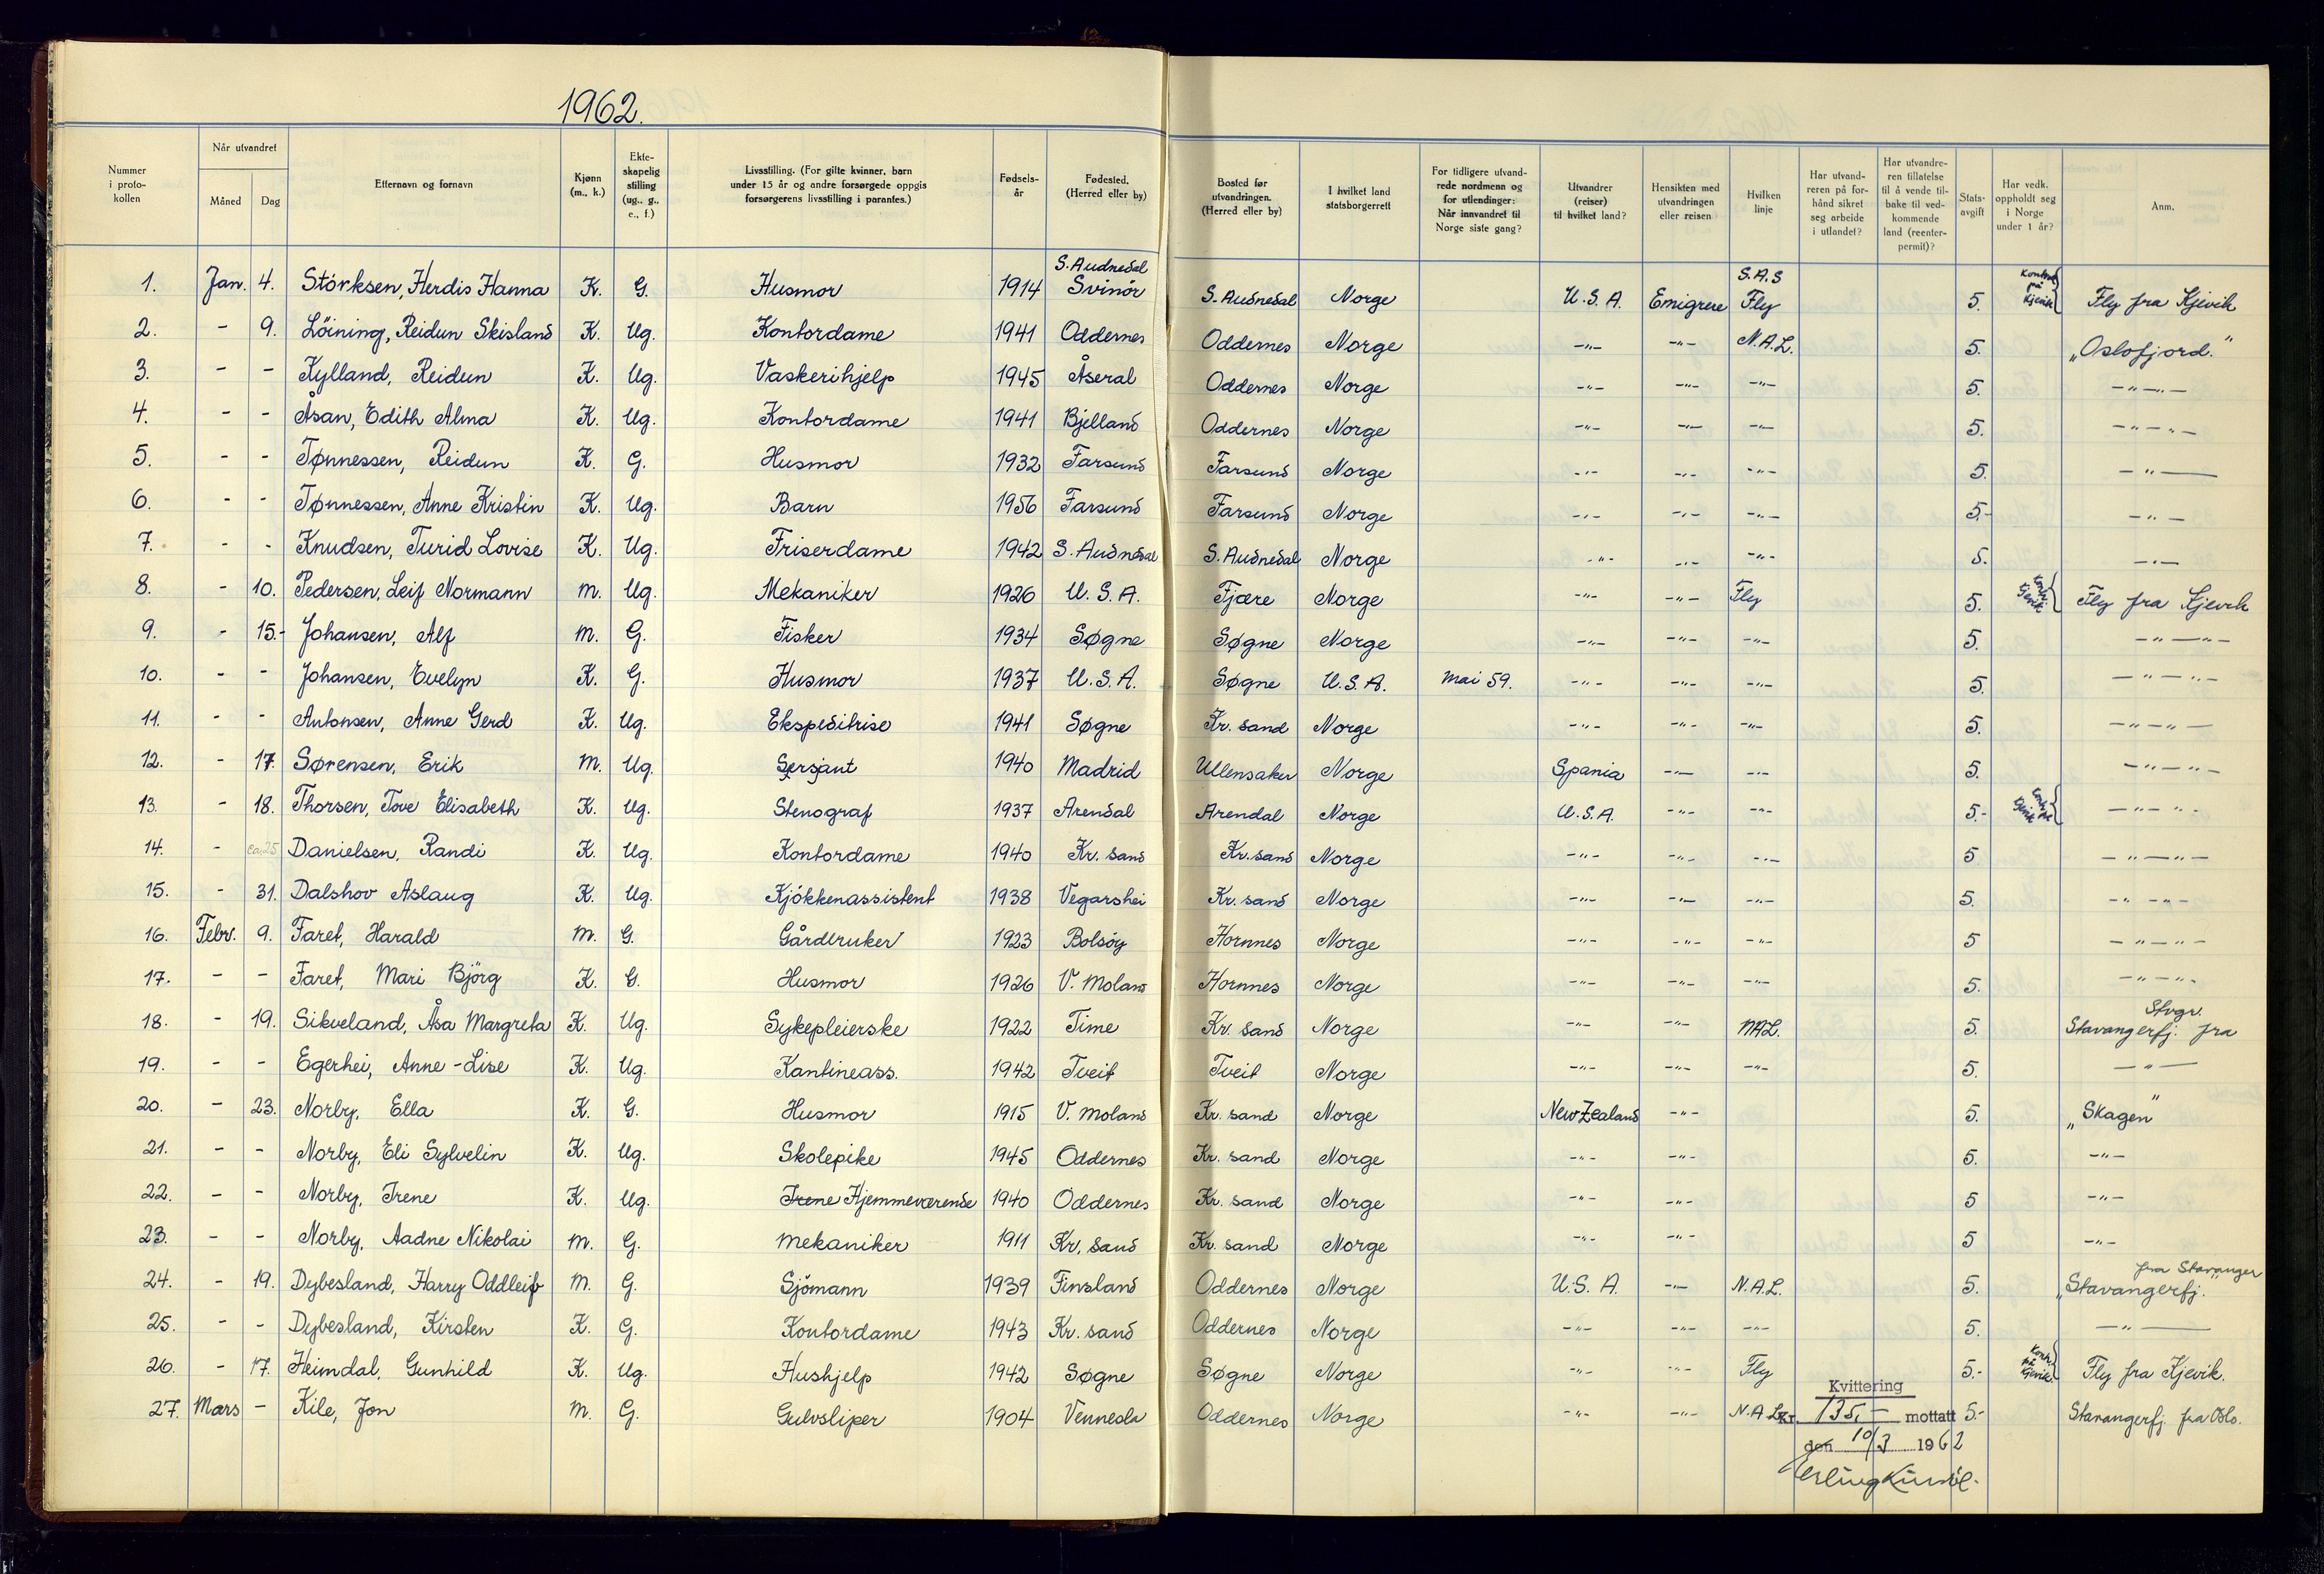 1962.
Nummer i proto-kollen | Når utvandret Måned Dag | Etternavn og fornavn | Kjønn (m., k.) | Ekte-skapelig stilling (ug., g., e., f.) | Livsstilling. (For gifte kvinner, barn under 15 år og andre forsørgede oppgis forsørgerens livsstilling i parantes.) | Fødsels-år | Fødested. (Herred eller by) | Bosted før utvandringen. (Herred eller by) | I hvilket land statsborgerrett | For tidligere utvand-rede nordmenn og for utlendinger: Når innvandret til Norge siste gang? | Utvandrer (reiser) til hvilket land? | Hensikten med utvandringen eller reisen | Hvilken linje | Har utvand-reren på for-hånd sikret seg arbeide i utlandet? | Har utvandre-ren tillatelse til å vende til-bake til ved-kommende land (reenter-permit)? | Stats-avgift | Har vedk. oppholdt seg i Norge under 1 år? | Anm.
1. Jan. 4. Störksen, Herdis Hanna K. G. Husmor 1914 S. Audnedal Svinör S. Audnedal Norge U.S.A. Emigrere S.A.S Fly 5. på Kjevik Fly fra Kjevik
2. - 9. Löining, Reidun Skisland K. Ug. Kontordame 1941 Oddernes Oddernes Norge -"- -"- N.A.L. 5. „Oslofjord."
3. - - Kylland, Reidun K. Ug. Vaskerihjelp 1945 Åseral Oddernes Norge -"- -"- -"- 5. -"-"-
4. - - Åsan, Edith Alma K. Ug. Kontordame 1941 Bjelland Oddernes Norge -"- -"- -"- 5. -"-"-
5. - - Tønnessen, Reidun K. G. Husmor 1932 Farsund Farsund Norge -"- -"- -"- 5. -"-
6. - - Tønnessen, Anne Kristin K. Ug. Barn 1956 Farsund Farsund Norge -"- -"- -"- 5.- -"-
7. - - Knudsen, Turid Lovise K. Ug. Friserdame 1942 S. Audnedal S. Audnedal Norge -"- -"- -"- 5. -"-
8. - 10. Pedersen, Leif Normann M. Ug. Mekaniker 1926 U.S.A. Fjære Norge -"- -"- Fly 5. Kontr. Kjevik Fly fra Kjevik
9. - 15.- Johansen, Alf M. G. Fisker 1934 Søgne Søgne Norge -"- -"- -"- 5. -"-"-
10. - - Johansen, Evelyn K. G. Husmor 1937 U.S.A. Søgne U.S.A. Mai 59. -"- -"- -"- 5. -"-"-
11. - - Antonsen, Anne Gerd K. Ug. Ekspeditrise 1941 Søgne Kr. sand Norge -"- -"- -"- 5. -"-"-
12. - 17. Sørensen, Erik M. Ug. Sersjant 1940 Madrid Ullensaker Norge Spania -"- -"- 5. -"-"-
13. - 18. Thorsen, Tove Elisabeth K. Ug. Stenograf 1937 Arendal Arendal Norge U.S.A. -"- -"- 5.- Kontr. på Kjevik -"-"-
14. - ca. 25 Danielsen, Randi K. Ug. Kontordame 1940 Kr. sand Kr. sand Norge -"- -"- -"- 5 -"-"-
15. - 31. Dalshov Aslaug K. Ug. Kjökkenassistent 1938 Vegarshei Kr. sand Norge -"- -"- -"- 5. -"-"-
16. Febr. 9. Faret, Harald M. G. Gårdbruker 1923 Bolsöy Hornnes Norge -"- -"- -"- 5 -"-"-
17. - - Faret, Mari Björg K. G. Husmor 1926 V. Moland Hornnes Norge -"- -"- -"- 5. -"-"-
18. - 19. Sikveland, Åsa Margreta K. Ug. Sykepleierske 1922 Time Kr. sand Norge -"- -"- NAL. 5. Stavangerfj. fra Stvgr.
19. - - Egerhei, Anne-Lise K. Ug. Kantineass. 1942 Tveit Tveit Norge -"- -"- -"- 5. -"-
20. - 23. Norby, Ella K. G. Husmor 1915 V. Moland Kr. sand Norge New Zealand -"- 5. „Skagen"
21. - - Norby, Eli Sylvelin K. Ug. Skolepike 1945 Oddernes Kr. sand Norge -"- -"- 5. -"-
22. - - Norby, Irene K. Ug. Irene Hjemmeværende 1940 Oddernes Kr. sand Norge -"- -"- 5 -"-
23. - - Norby, Aadne Nikolai M. G. Mekaniker 1911 Kr. sand Kr. sand Norge -"- -"- 5 -"-
24. - 19. Dybesland, Harry Oddleif M. G. Sjömann 1939 Finsland Oddernes Norge U.S.A. -"- N.A.L. 5. „Stavangerfj." fra Stavanger
25. - - Dybesland, Kirsten K. G. Kontordame 1943 Kr. sand Oddernes Norge -"- -"- -"- 5. -"-
26. - 17. Heimdal, Gunhild K. Ug. Hushjelp 1942 Søgne Søgne Norge -"- -"- Fly 5.- Kontr. på Kjevik Fly fra Kjevik.
27. Mars - Kile, Jon M. G. Gulvsliper 1904 Vennesla Oddernes Norge -"- -"- N.A.L. 5.- Stavangerfj. fra Oslo.
Kvittering
Kr. 135,- mottatt
den 10/3 1962
Erling